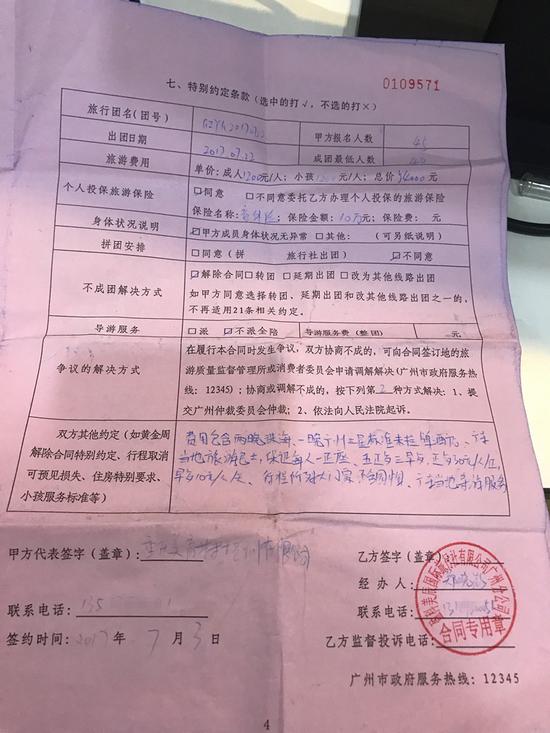 七、特别约定条款（选中的打√，不选的打×）
0109571
旅行团名(团号) 2017.07.22 甲方报名人数 45
出团日期 2017.07.22 成团最低人数
旅游费用 单价：成人1200元/人；小孩 元/人；总价54000元
个人投保旅游保险 ☑同意 □不同意委托乙方办理个人投保的旅游保险
保险名称： ；保险金额：10万元；保险费： 元
身体状况说明 ☑甲方成员身体状况无异常 □其他： （可另纸说明）
拼团安排 □同意（拼 旅行社出团） ☑不同意
不成团解决方式 ☑解除合同□转团 □延期出团 □改为其他线路出团
如甲方同意选择转团、延期出团和改其他线路出团之一的，
不再适用21条相关约定。
导游服务 □派 ☑不派全陪 导游服务费（整团） 元
争议的解决方式
在履行本合同时发生争议，双方协商不成的，可向合同签订地的旅
游质量监督管理所或消费者委员会申请调解解决(广州市政府服务热
线：12345)；协商或调解不成的，按下列第2种方式解决：1、提
交广州仲裁委员会仲裁；2、依法向人民法院起诉。
双方其他约定（如黄金周
解除合同特别约定、行程取消
可预见损失、住房特别要求、
小孩服务标准等）
费用包含两晚珠海、一晚广州三星标准
当地旅游巴士，保证每人一正座、五正三早，正30元/人/正，
早10元/人，行程所列大门票
甲方代表签字（盖章）：
联系电话：135
签约时间：2017年 7月 3日
乙方签字（盖章）：
经办人：
联系电话：
乙方监督投诉电话：
国际旅行社有限公司广州分公司
合同专用章
广州市政府服务热线：12345
4